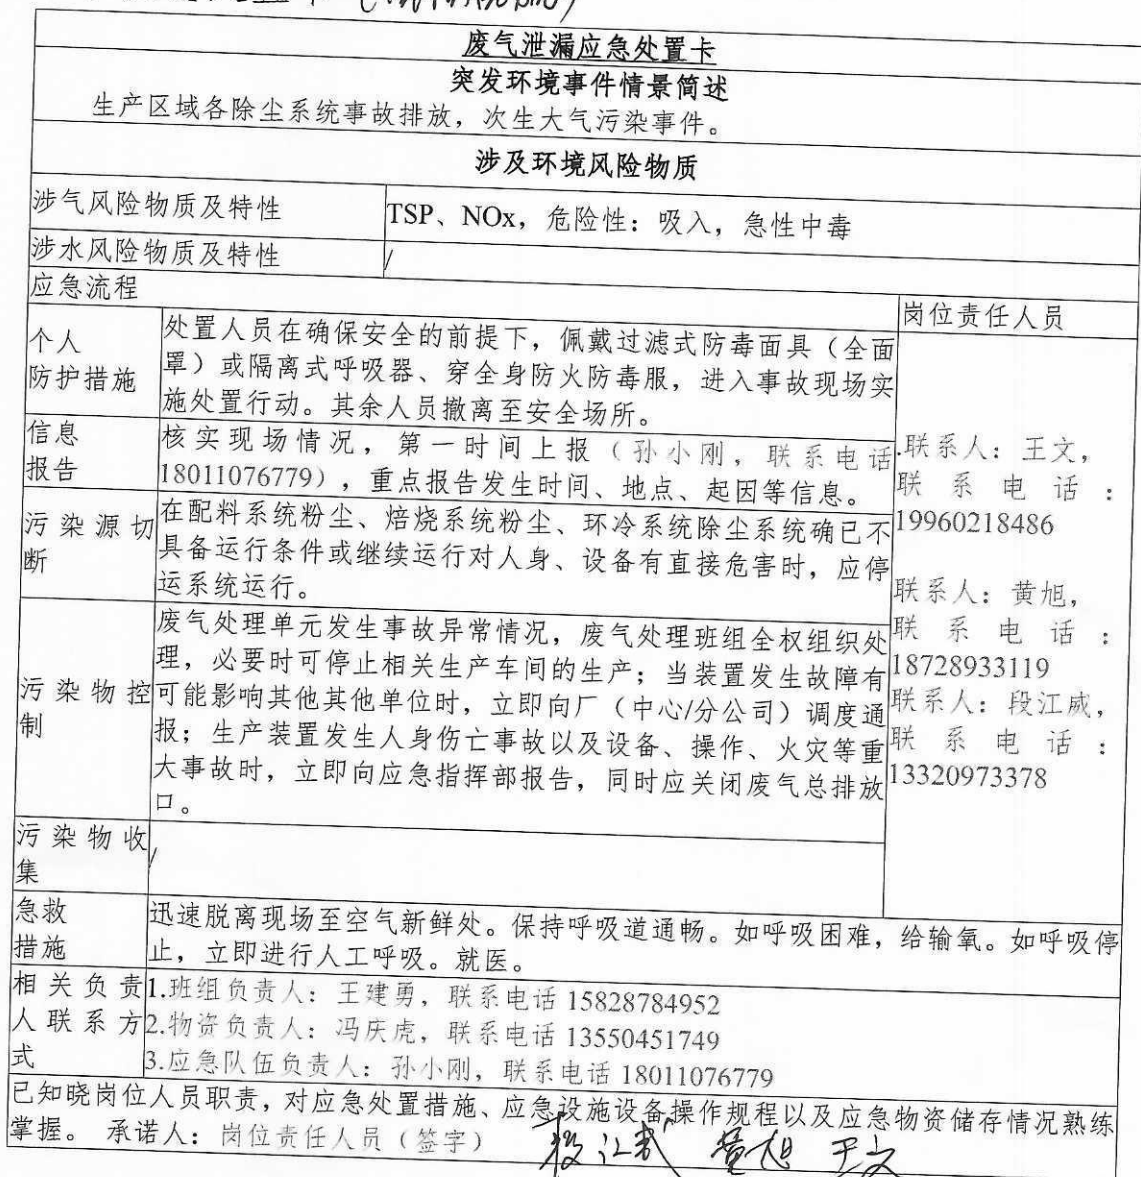 废气泄漏应急处置卡
突发环境事件情景简述
生产区域各除尘系统事故排放，次生大气污染事件。
涉及环境风险物质
涉气风险物质及特性
TSP、NOx，危险性：吸入，急性中毒
涉水风险物质及特性
/
应急流程
岗位责任人员
个人
防护措施
处置人员在确保安全的前提下，佩戴过滤式防毒面具（全面
罩）或隔离式呼吸器、穿全身防火防毒服，进入事故现场实
施处置行动。其余人员撤离至安全场所。
信息
报告
核实现场情况，第一时间上报（孙小刚，联系电话
18011076779），重点报告发生时间、地点、起因等信息。
污染源切
断
在配料系统粉尘、焙烧系统粉尘、环冷系统除尘系统确已不
具备运行条件或继续运行对人身、设备有直接危害时，应停
运系统运行。
污染物控
制
废气处理单元发生事故异常情况，废气处理班组全权组织处
理，必要时可停止相关生产车间的生产；当装置发生故障有
可能影响其他其他单位时，立即向厂（中心/分公司）调度通
报；生产装置发生人身伤亡事故以及设备、操作、火灾等重
大事故时，立即向应急指挥部报告，同时应关闭废气总排放
口。
.联系人：王文，
联系电话：
19960218486
联系人：黄旭，
联系电话：
18728933119
联系人：段江威，
联系电话：
13320973378
污染物收
集
/
急救
措施
迅速脱离现场至空气新鲜处。保持呼吸道通畅。如呼吸困难，给输氧。如呼吸停
止，立即进行人工呼吸。就医。
相关负责
人联系方
式
1.班组负责人：王建勇，联系电话 15828784952
2.物资负责人：冯庆虎，联系电话 13550451749
3.应急队伍负责人：孙小刚，联系电话 18011076779
已知晓岗位人员职责，对应急处置措施、应急设施设备操作规程以及应急物资储存情况熟练
掌握。 承诺人：岗位责任人员（签字） 段江威 黄旭 王文